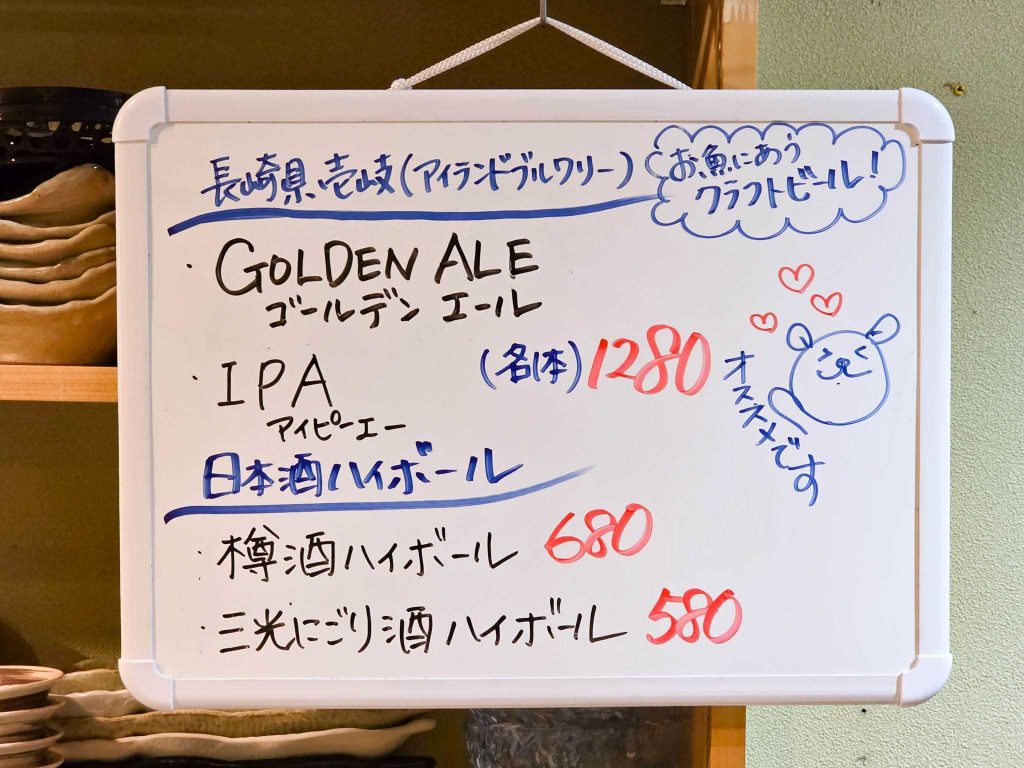 長崎県壱岐(アイランドブルワリー)
お魚にあう
クラフトビール!
・GOLDEN ALE
ゴールデン エール
・IPA
アイピーエー
(各1本) 1280
オススメです
日本酒ハイボール
・樽酒ハイボール 680
・三光にごり酒ハイボール 580